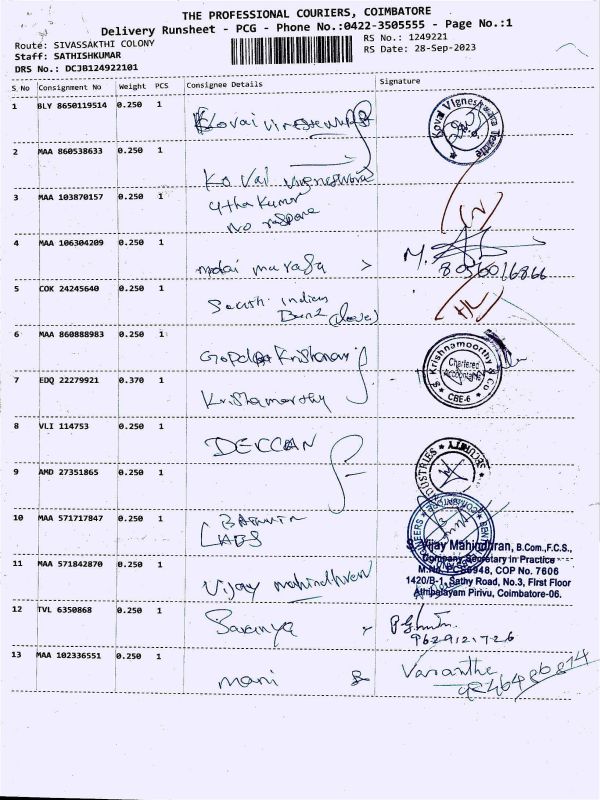 THE PROFESSIONAL COURIERS, COIMBATORE
Delivery Runsheet - PCG - Phone No.:0422-3505555 - Page No.:1
Route: SIVASSAKTHI COLONY
RS No.: 1249221
Staff: SATHISHKUMAR
RS Date: 28-Sep-2023
DRS No.: DCJB124922101
S No Consignment No Weight PCS Consignee Details Signature
1 BLY 8650119514 0.250 1 Kovai
Kovai Vigneshwara Textile
2 MAA 860538633 0.250 1 Kovai
3 MAA 103870157 0.250 1 Kumar
No
4 MAA 106304209 0.250 1
8056016866
5 COK 24245640 0.250 1 South Indian
Bank
6 MAA 860888983 0.250 1 Gopal Krishnan
S. Krishnamoorthy & Co
Chartered Accountants
CBE-6
7 EDQ 22279921 0.370 1 Krishamorthy
8 VLI 114753 0.250 1 DECCAN
9 AMD 27351865 0.250 1
10 MAA 571717847 0.250 1
LABS
S. Vijay Mahindhran, B.Com.,F.C.S.,
Company Secretary in Practice
11 MAA 571842870 0.250 1 Vijay
COP No. 7606
1420/B-1, Sathy Road, No.3, First Floor
Athipalayam Pirivu, Coimbatore-06.
12 TVL 6350868 0.250 1 Saranya
9629121726
13 MAA 102336551 0.250 1 mani
Vasantha